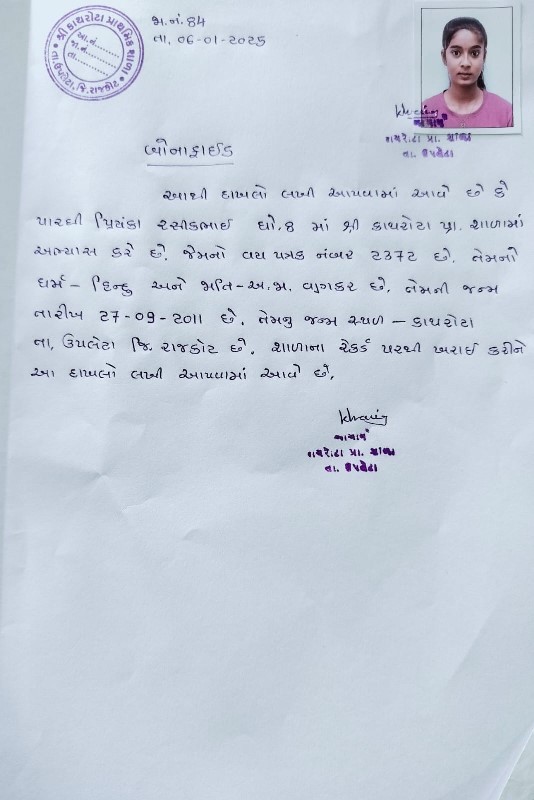 શ્રી કાથરોટા પ્રાથમિક શાળા
આ.નં.
જા.નં.
તા.
તા.ઉપલેટા, જિ.રાજકોટ
જા.નં. 84
તા. 06-01-2025
આચાર્ય
કાથરોટા પ્રા. શાળા
તા. ઉપલેટા
બોનાફાઈડ
આથી દાખલો લખી આપવામાં આવે છે કે
પારઘી પ્રિયંકા રસીકભાઈ ધો.8 માં શ્રી કાથરોટા પ્રા. શાળામાં
અભ્યાસ કરે છે. જેમનો વય પત્રક નંબર 2372 છે. તેમની
ધર્મ – હિન્દુ અને જાતિ-અ.જા. વણકર છે. તેમની જન્મ
તારીખ 27-09-2011 છે. તેમનુ જન્મ સ્થળ – કાથરોટા
તા. ઉપલેટા જિ. રાજકોટ છે. શાળાના રેકર્ડ પરથી ખરાઈ કરીને
આ દાખલો લખી આપવામાં આવે છે.
આચાર્ય
કાથરોટા પ્રા. શાળા
તા. ઉપલેટા